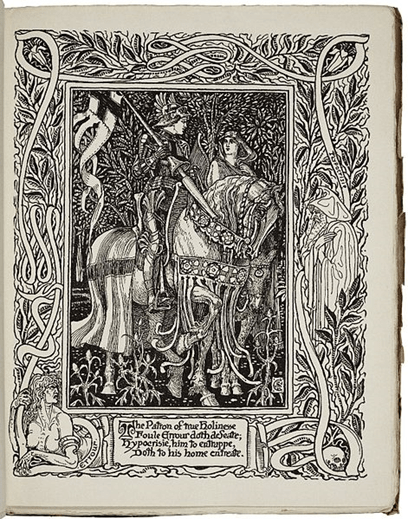 The Patron of true Holinesse
Foule Errour doth defeate;
Hypocrisie, him to entrappe,
Doth to his home entreate.
ERROUR